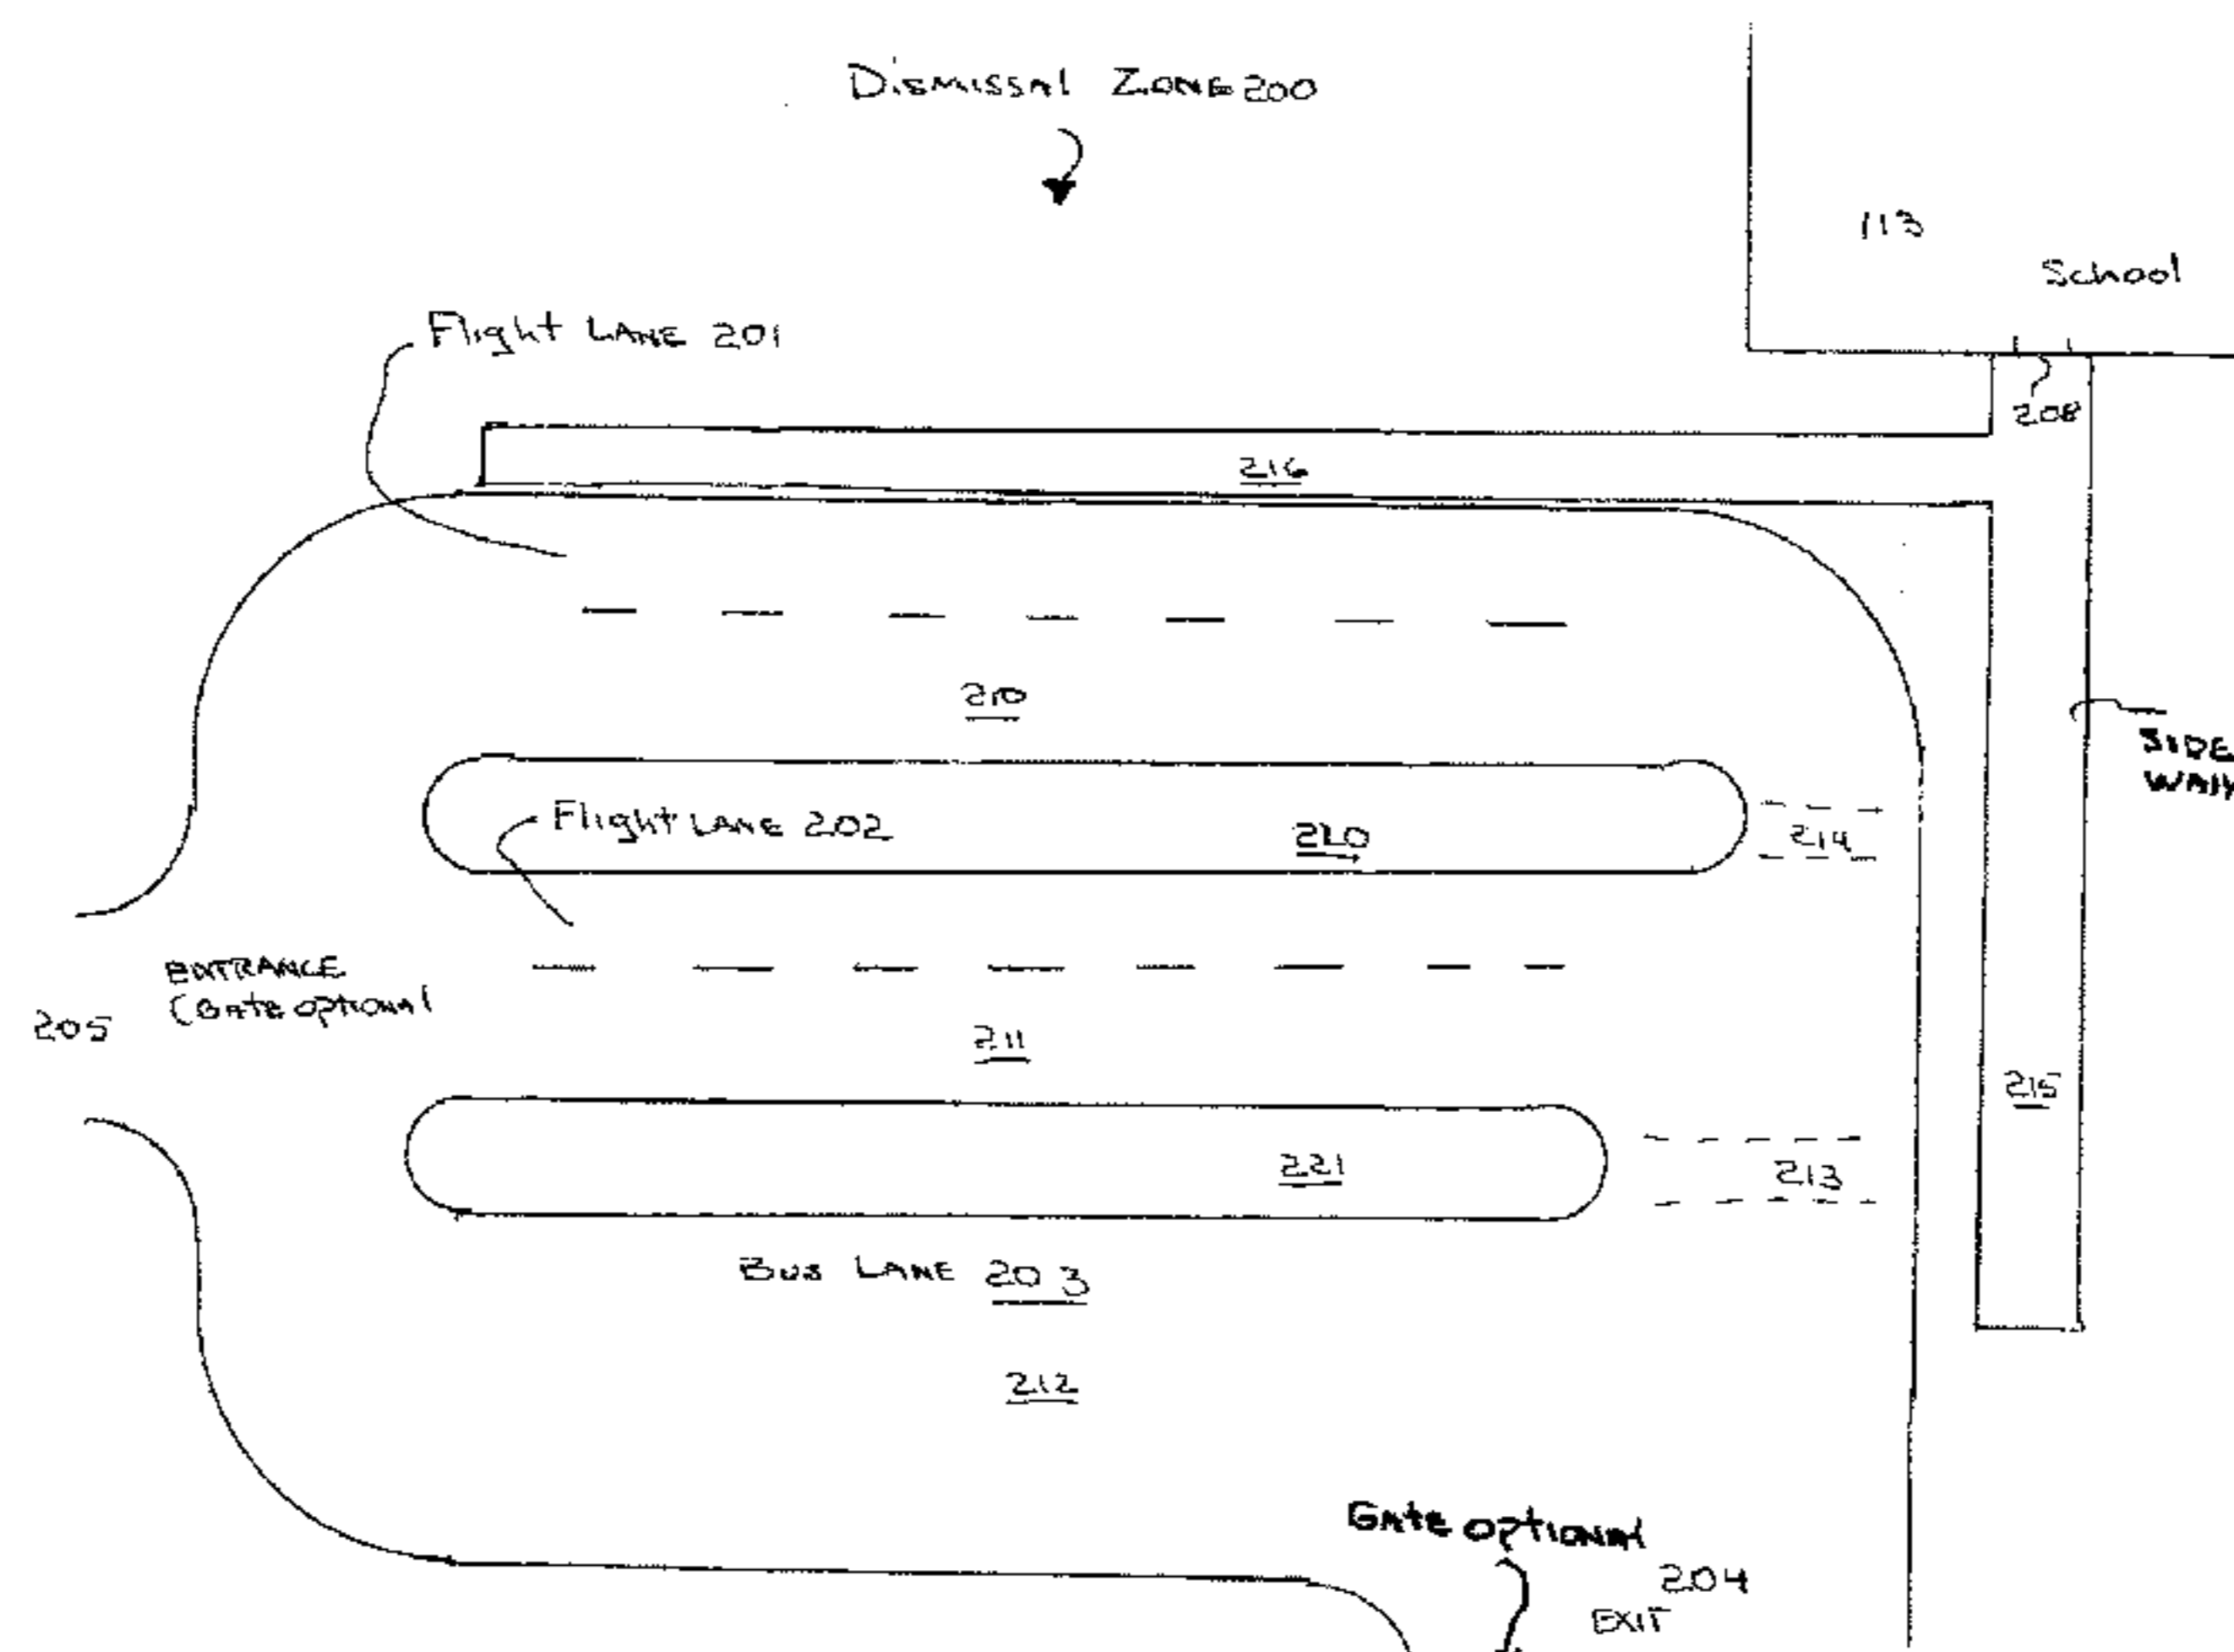 Dismissal Zone 200
113
School
Flight LANE 201
208
216
210
SIDE
WALK
Flight LANE 202
220
214
ENTRANCE
(Gate optional
205
211
215
221
213
Bus LANE 203
212
Gate optional
204
EXIT